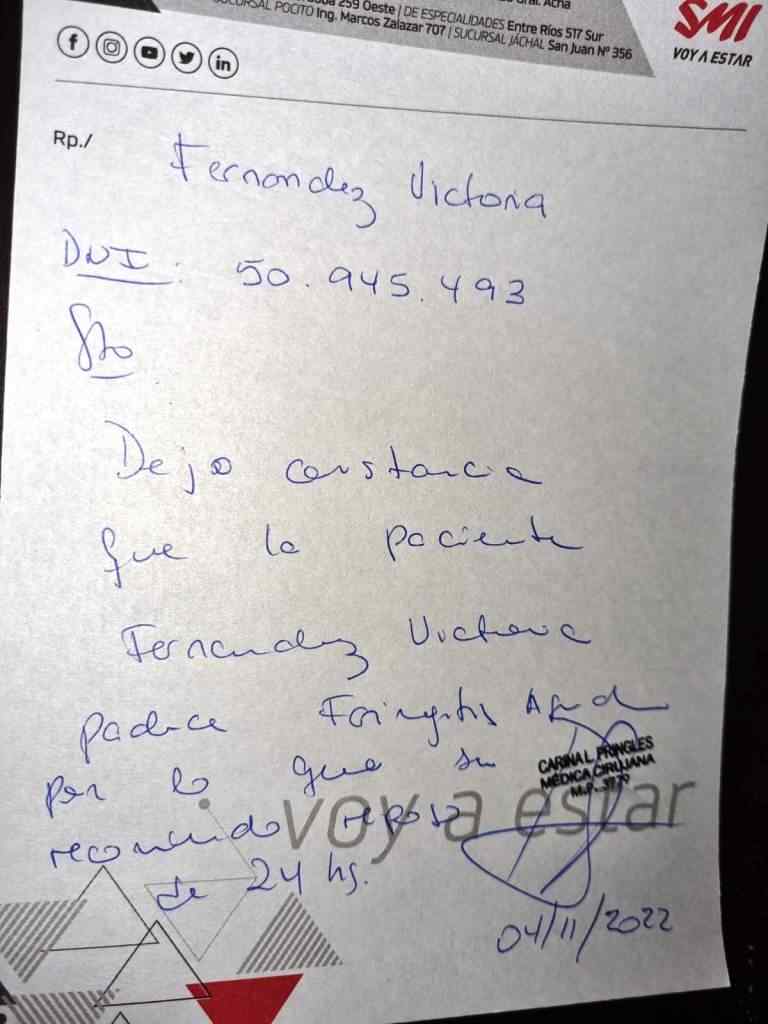 Gral. Acha
259 Oeste | DE ESPECIALIDADES Entre Ríos 517 Sur
SUCURSAL POCITO Ing. Marcos Zalazar 707 | SUCURSAL JÁCHAL San Juan Nº 356
SMI
VOY A ESTAR
Rp./
Fernandez Victoria
DNI: 50.945.493
Dejo constancia
que la paciente
Fernandez Victoria
padece Faringitis Aguda
por lo que se
recomienda reposo
de 24 hs.
CARINA L. PRINGLES
MÉDICA CIRUJANA
M.P.
voy a estar
04/11/2022